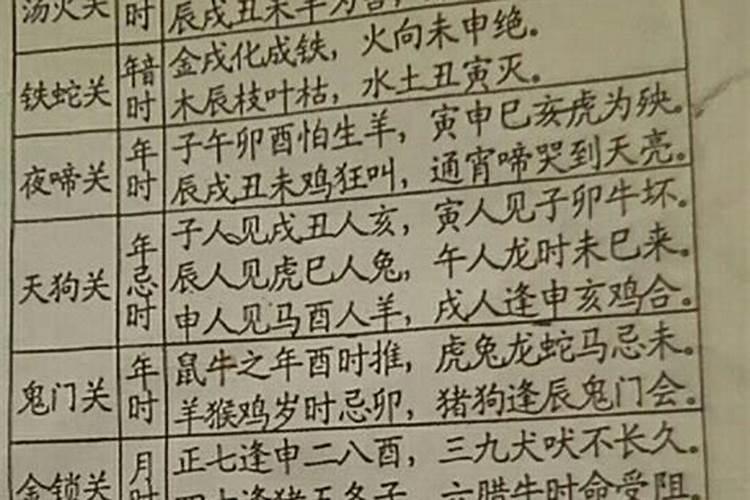 汤火关
时
辰戌丑未羊为
铁蛇关
年音时
金戌化成铁，火向未申绝。
木辰枝叶枯，水土丑寅灭。
夜啼关
年时
子午卯酉怕生羊，寅申巳亥虎为殃。
辰戌丑未鸡狂叫，通宵啼哭到天亮。
天狗关
年忌时
子人见戌丑人亥，寅人见子卯牛坏。
辰人见虎巳人兔，午人龙时未巳来。
申人见马酉人羊，戌人逢申亥鸡合。
鬼门关
年时
鼠牛之年酉时推，虎兔龙蛇马忌未。
羊猴鸡岁时忌卯，猪狗逢辰鬼门会。
金锁关
月时
正七逢申二八酉，三九犬吠不长久。
四十逢猪五冬子，六腊牛时命受阻。